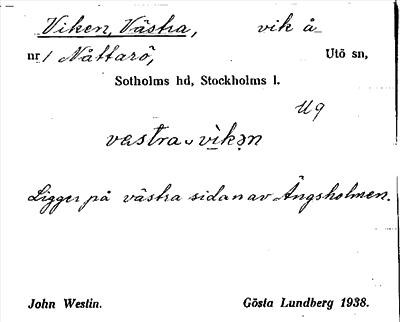 Viken, Västra, vik å
nr 1 Nåttarö, Utö sn,
Sotholms hd, Stockholms l.
Ug
Ligger på västra sidan av Ängsholmen.
John Westin. Gösta Lundberg 1938.